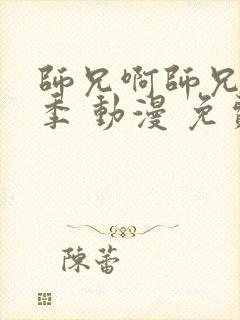 師兄啊師兄
季 動漫 免
陳蕾